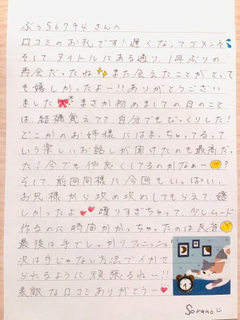 ぶぅ56794さんへ
口コミのお礼です!遅くなってゴメンネ
そしてタイトルにある通り、1年ぶりの
再会だったね また会えたことがとって
も嬉しかったよー!!ありがとうござい
ました まさか初めましての日のこと
は 結構覚えてて自分でもびっくりした!
どこかのお姉様にはまっちゃってるって
いう楽しいお話しが聞けたのも最高だっ
た!今でも仲良くしてるのかなぁー?
そして、前回同様に今回もいっぱい、
お兄様から攻め攻めしてもらえて嬉
しかったよ 喋りすぎちゃって、少しムード
作るのに時間かかっちゃったのは反省
最後は手でしっかりフィニッシュ!
次は手じゃない方法でイかせ
られるように頑張るねー!!
素敵な口コミありがとうー
Sorano